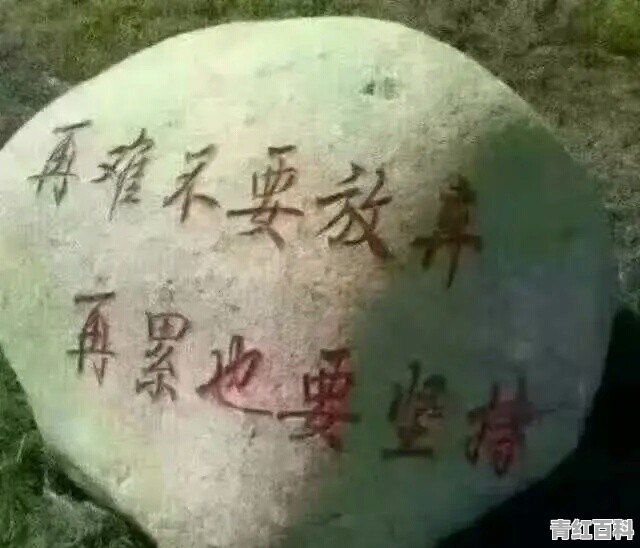 再难不要放弃
再累也要坚持
青红百科